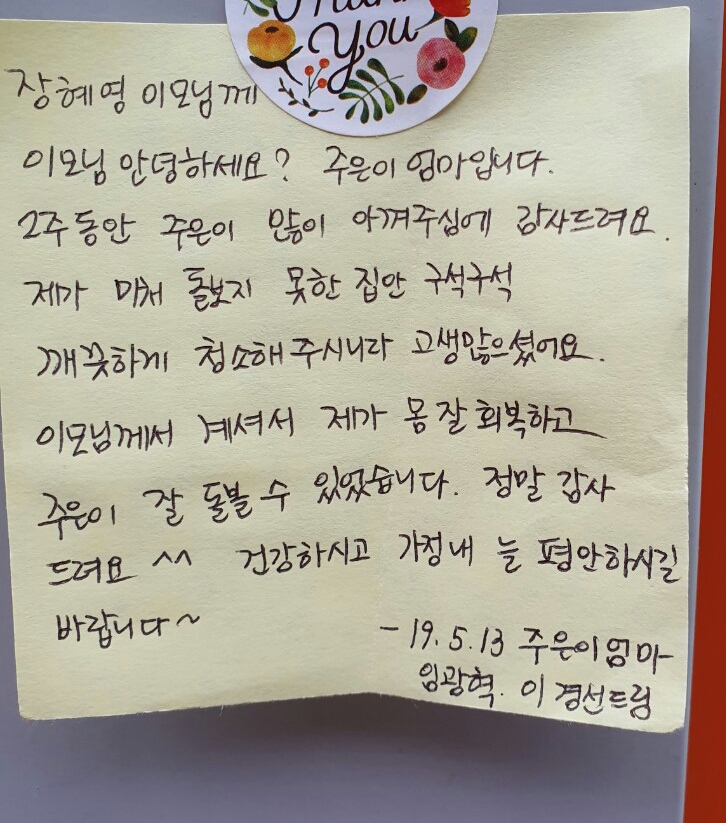 Thank
You
장혜영 이모님께
이모님 안녕하세요? 주은이 엄마입니다.
2주동안 주은이 많이 아껴주심에 감사드려요.
제가 미처 돌보지 못한 집안 구석구석
깨끗하게 청소해주시니라 고생많으셨어요.
이모님께서 계셔서 제가 몸 잘 회복하고
주은이 잘 돌볼 수 있었습니다. 정말 감사
드려요 ^^ 건강하시고 가정내 늘 평안하시길
바랍니다~
- 19.5.13 주은이엄마
임광혁. 이경선드림